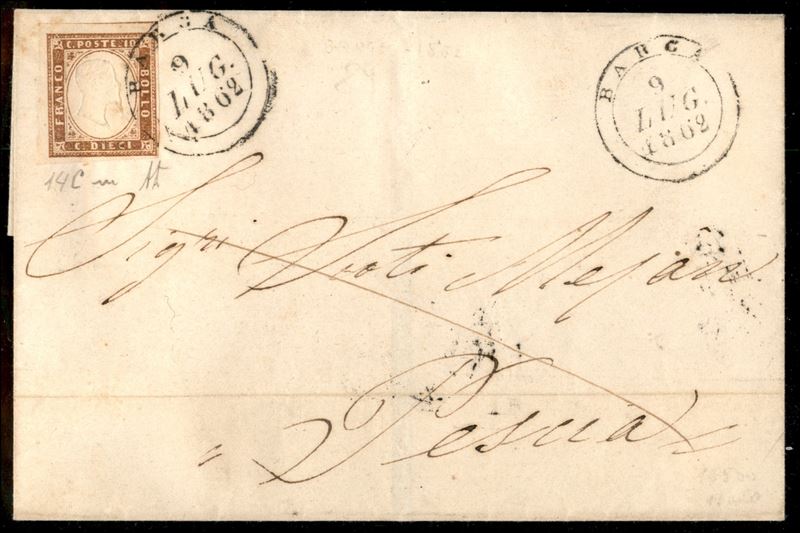 C. POSTE 10
FRANCO
BOLLO
C. DIECI
BARGA
9
LUG.
1862
BARGA
9
LUG.
1862
14C
Sig.ri
Pescia